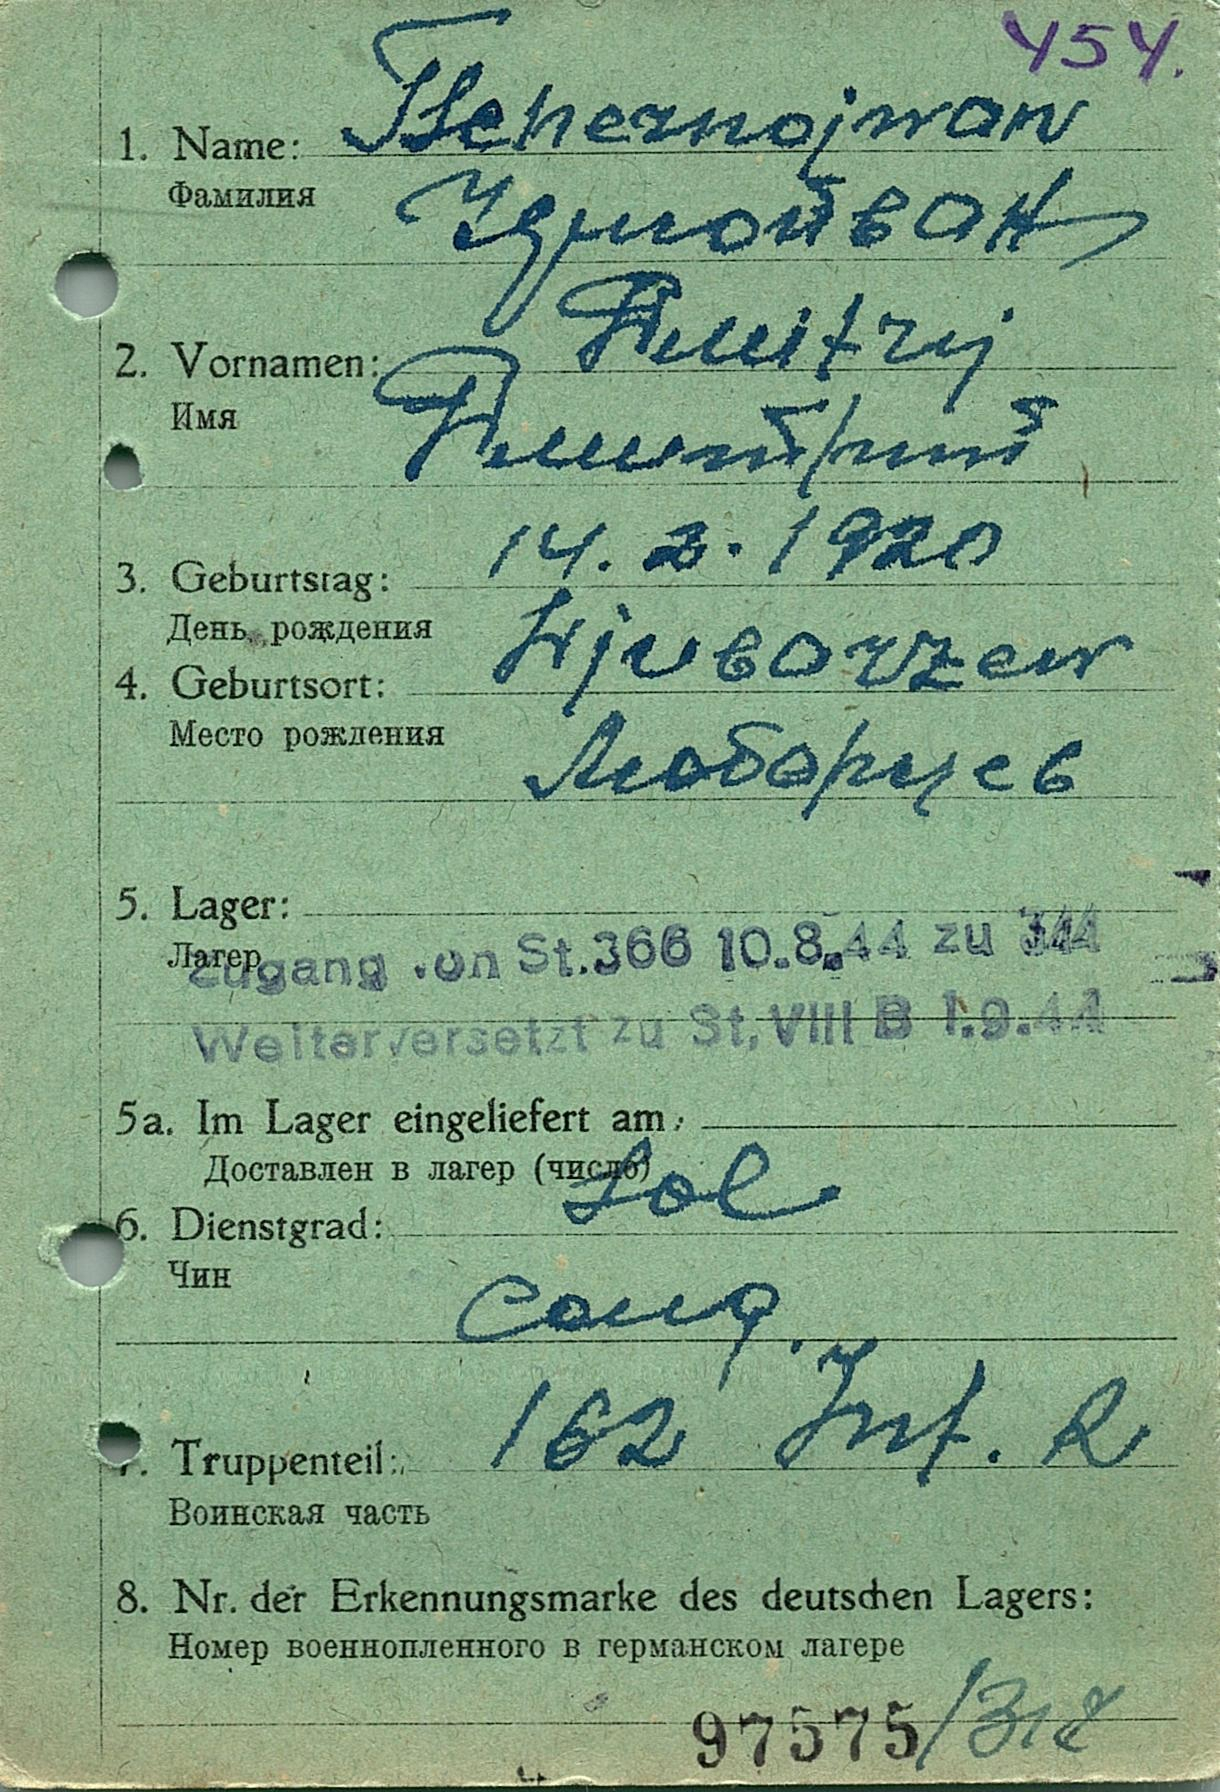 454.
1. Name: Tschernojwan
Фамилия
Чернойван
2. Vornamen: Dmitrij
Имя
Дмитрий
14. 2. 1920
3. Geburtstag:
День рождения
Ljuborzew
4. Geburtsort:
Место рождения
Люборцев
5. Lager:
Лагер
Zugang von St.366 10.8.44 zu 344
Weiterversetzt zu St. VIII B 1.9.44
5a. Im Lager eingeliefert am:
Доставлен в лагер (число)
Sol
6. Dienstgrad:
Чин
162 Inf. R
7. Truppenteil:
Воинская часть
8. Nr. der Erkennungsmarke des deutschen Lagers:
Номер военнопленного в германском лагере
97575/318